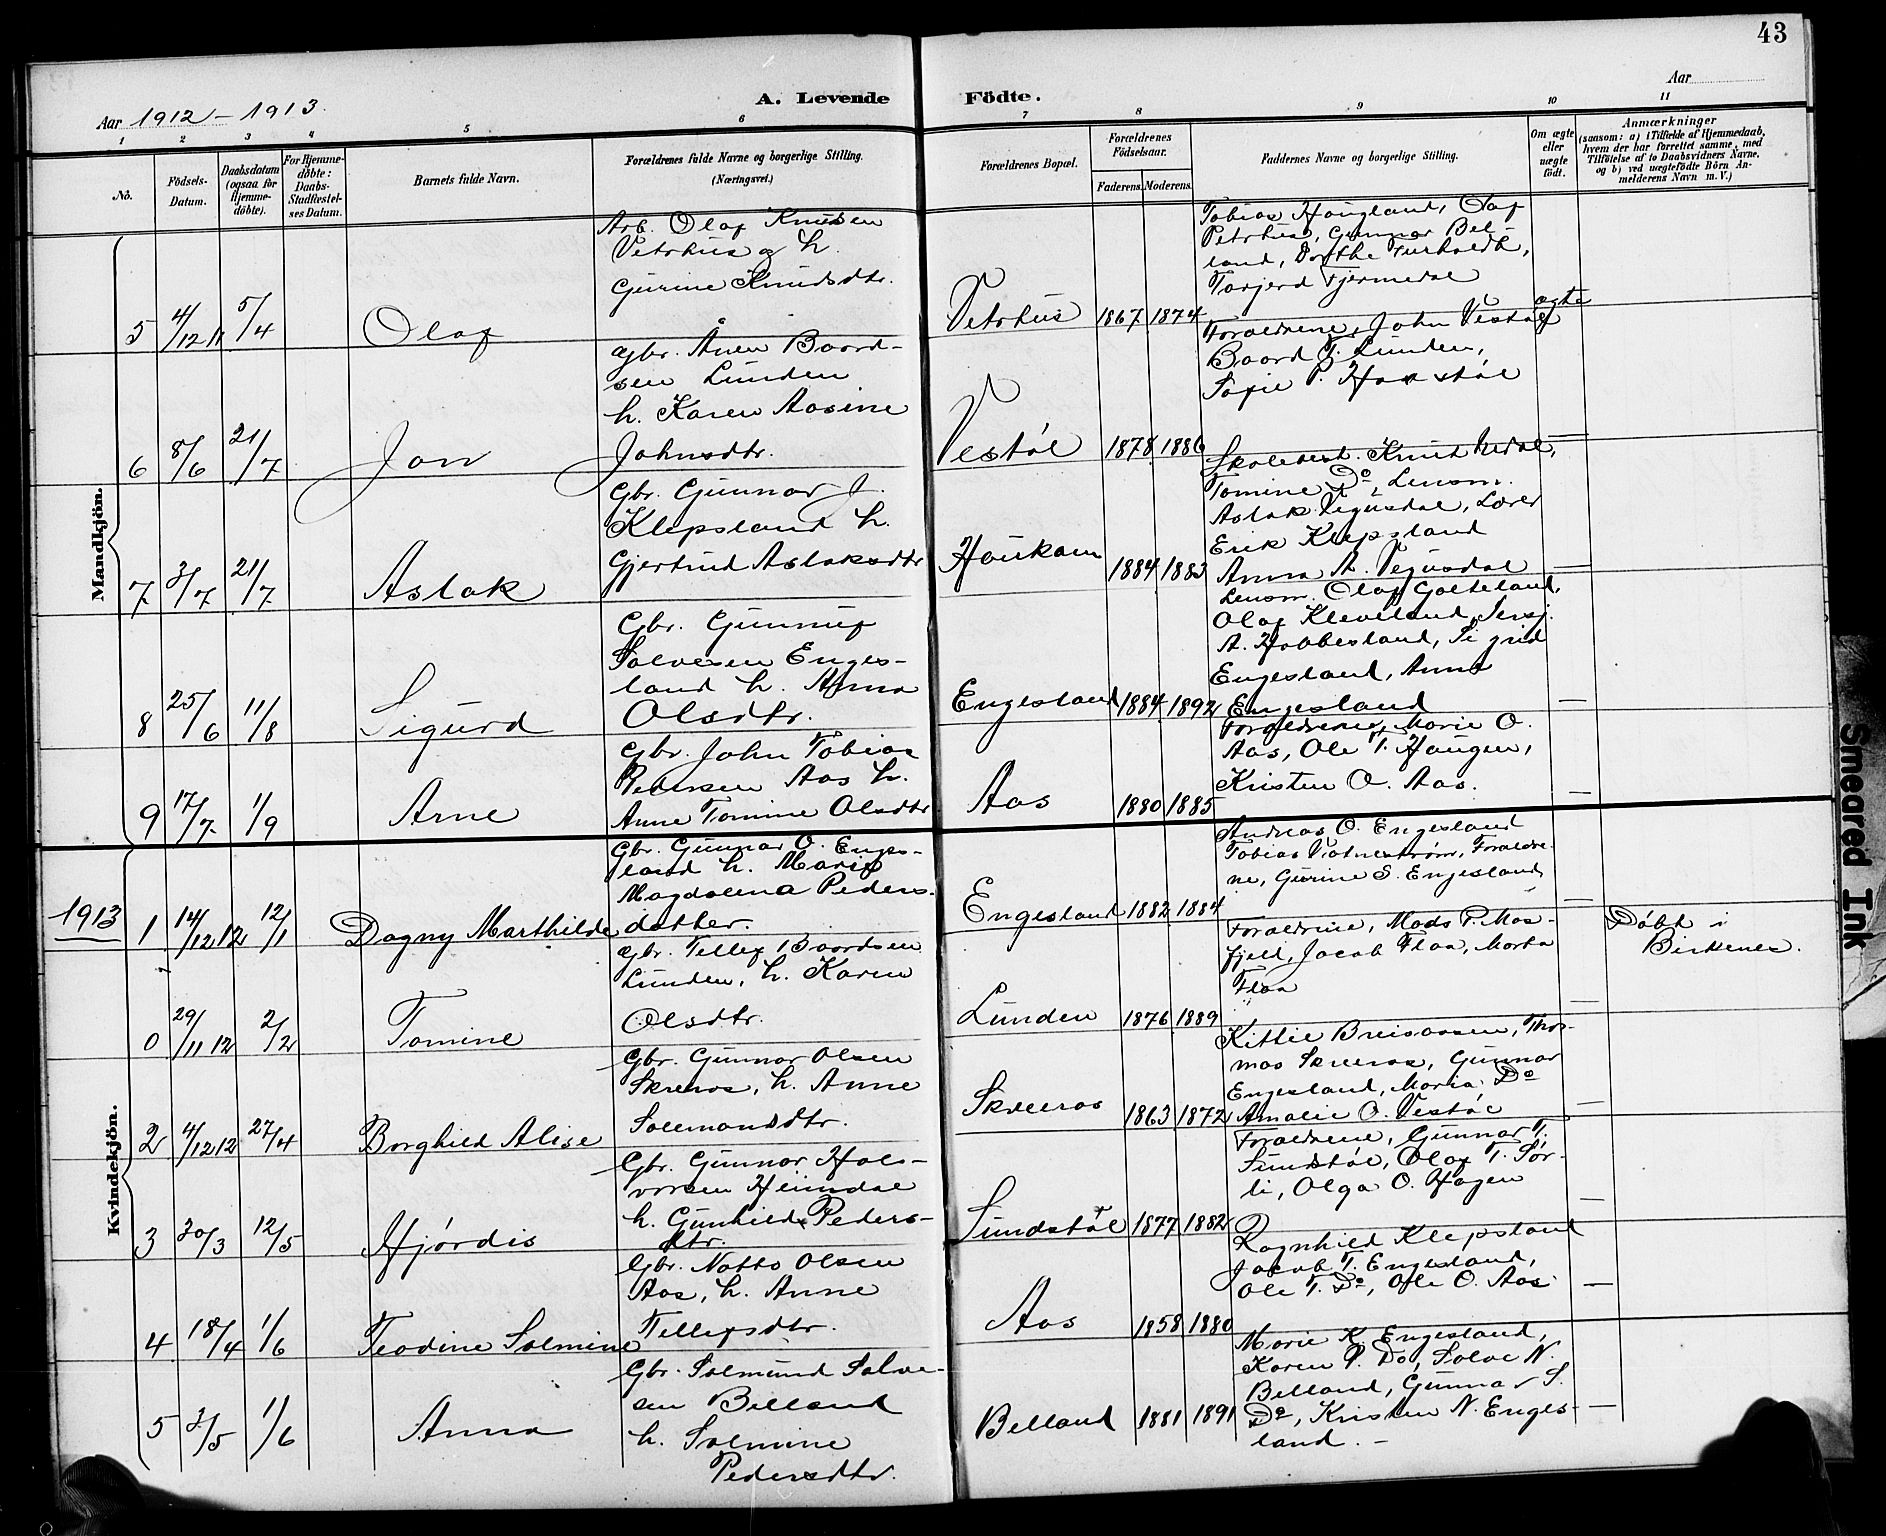 43
Aar 1912 – 1913.
A. Levende Födte.
Aar
1 2 3 4 5 6 7 8 9 10 11
No.
Födsels-
Datum.
Daabsdatum
(ogsaa for
Hjemme-
döbte).
For Hjemme-
döbte:
Daabs-
Stadfæstel-
ses Datum.
Barnets fulde Navn.
Forældrenes fulde Navne og borgerlige Stilling.
(Næringsvei.)
Forældrenes Bopæl.
Forældrenes
Födselsaar.
Faderens. Moderens.
Faddernes Navne og borgerlige Stilling.
Om ægte
eller
uægte
födt.
Anmærkninger
(saasom: a) i Tilfælde af Hjemmedaab,
hvem der har forrettet samme, med
Tilföielse af to Daabsvidners Navne,
og b) ved uægtefödte Börn An-
melderens Navn m. V.)
Mandkjön.
5 4/12 11 5/4 Olaf
Arb. Olaf Knudsen
Vetrhus og h.
Gurine Knudsdtr.
Vetrhus 1867 1874
Tobias Haugland, Olaf
Petrhus, Gunnar Bel-
land, Dorthe
Torjerd Tjermedal
ægte
6 8/6 21/7 Jon
Gbr. Ånen Baard-
sen Lunden
h. Karen Aasine
Johnsdtr.
Vestøl 1878 1886
Forældrene, John Vestøl
Baard T. Lunden,
Sofie P. Havstøl
—
7 3/7 21/7 Aslak
Gbr. Gunnar J.
Klepsland h.
Gjertrud Aslaksdtr
Haukom 1884 1883
Skolebest. Knut
Tomine Do, Lensm.
Aslak Vegusdal, Lærer
Erik Klepsland
Anna A. Vegusdal
—
8 25/6 11/8 Sigurd
Gbr. Gunnuf
Salvesen Enges-
land h. Anna
Olsdtr.
Engesland 1884 1892
Lensm. Olaf Galteland,
Olaf Kleveland, Sersj.
A. Hobbesland, Signe
Engesland, Anna
Engesland
—
9 17/7 1/9 Arne
Gbr. John Tobias
Pedersen Aas h.
Anne Tomine Olsdtr
Aas 1880 1885
Forældrene, Marie O.
Aas, Ole T. Haugen,
Kristen O. Aas.
—
1913
Kvindekjön.
1 14/12 12 12/1 Dagny Marthilde
Gbr. Gunnar O. Enges-
land h. Marie
Magdalena Peders-
datter.
Engesland 1882 1884
Andreas O. Engesland
Tobias Vatnestrøm, Forældre-
ne, Gurine S. Engesland
—
Døbt i
Birkenes.
0 29/11 12 2/2 Tomine
Gbr. Tellef Baardsen
Lunden, h. Karen
Olsdtr.
Lunden 1876 1889
Forældrene, Mads P. Mos-
fjeld, Jacob Flaa, Marta
Flaa
—
2 4/12 12 27/4 Borghild Alise
Gbr. Gunnar Olsen
Skreros, h. Anne
Salemonsdtr.
Skreros 1863 1872
Kittil Breisaasen, Tho-
mas Skreros, Gunnar
Engesland, Maria Do
Amalie O. Vestøl
—
3 30/3 12/5 Hjørdis
Gbr. Gunnar Hal-
vorsen Heimdal
h. Gunhild Peders-
dtr.
Sundstøl 1877 1882
Forældrene, Gunnar T.
Sundstøl, Olaf T. Sør-
li, Olga O. Hagen
—
4 18/4 1/6 Teodine Salmine
Gbr. Notto Olsen
Aas, h. Anne
Tellefsdtr.
Aas 1858 1880
Ragnhild Klepsland
Jacob T. Engesland,
Ole T. Do, Ole O. Aas
—
5 3/5 1/6 Anna
Gbr. Salmund Salve-
sen Belland
h. Salmine
Pedersdtr.
Belland 1881 1891
Marie K. Engesland,
Karen P. Do, Salve N.
Belland, Gunnar S.
Do, Kristen N. Enges-
land. –
—
Smeared Ink